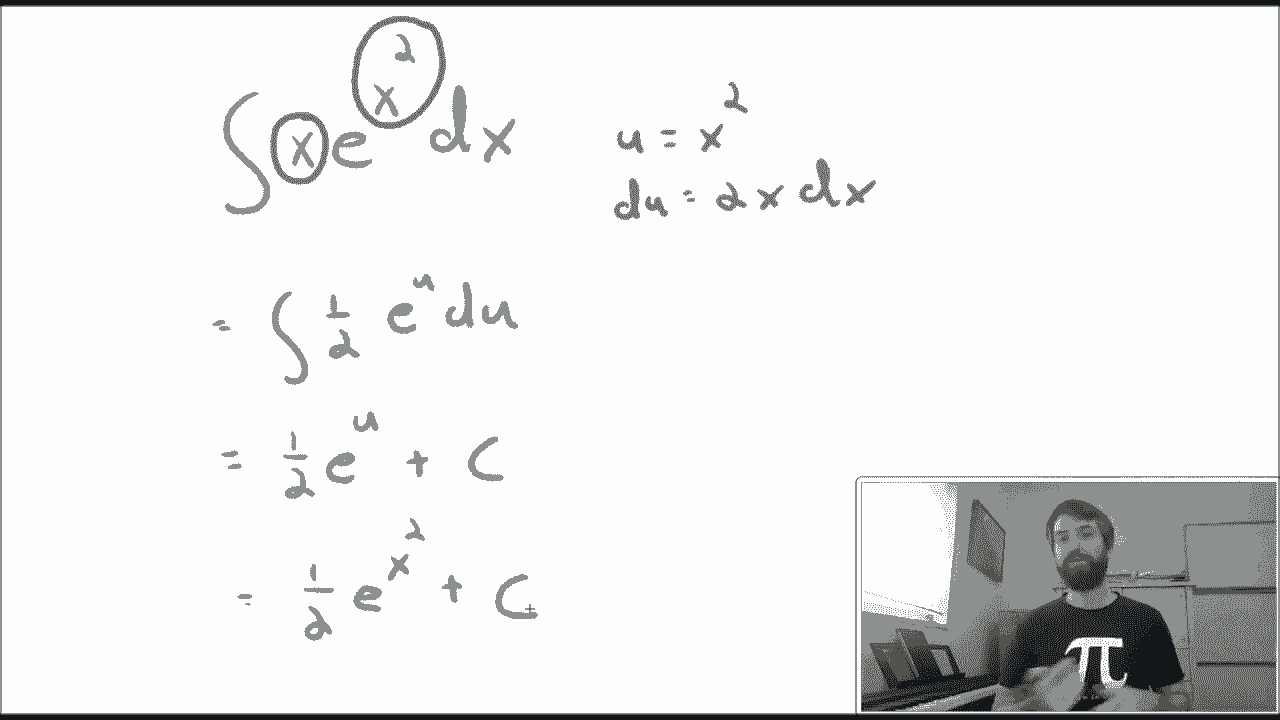 ∫ x e^x^2 dx
u = x^2
du = 2x dx
= ∫ 1/2 e^u du
= 1/2 e^u + C
= 1/2 e^x^2 + C
π